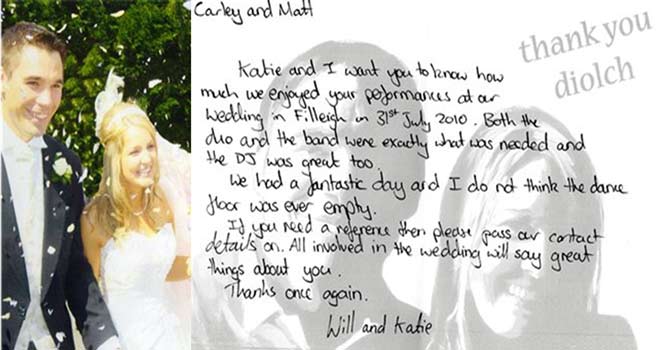 Carley and Matt
thank you
diolch
Katie and I want you to know how
much we enjoyed your performances at our
wedding in Filleigh on 31st July 2010. Both the
duo and the band were exactly what was needed and
the DJ was great too.
We had a fantastic day and I do not think the dance
floor was ever empty.
If you need a reference then please pass our contact
details on. All involved in the wedding will say great
things about you.
Thanks once again.
Will and Katie